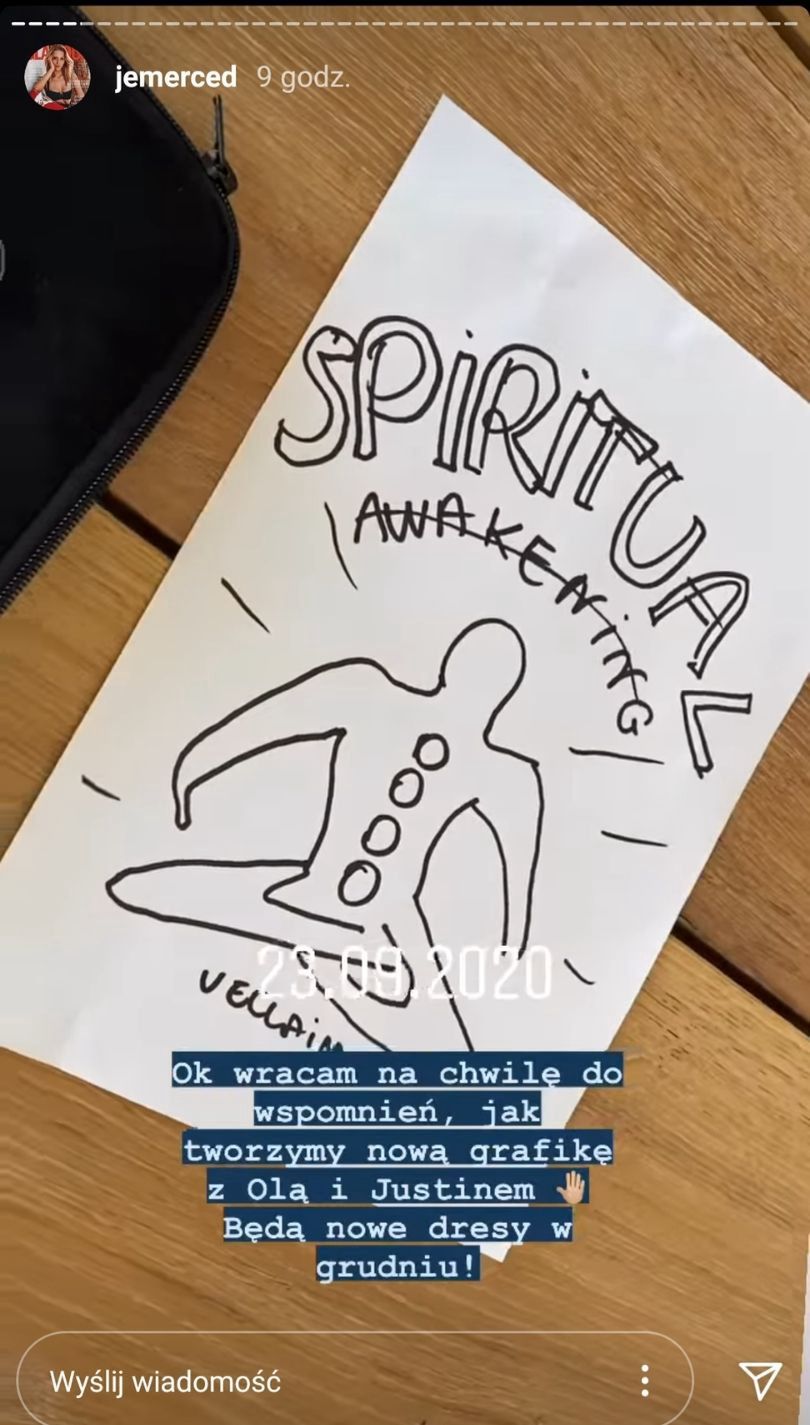 jemerced 9 godz.
SPiRiTUAL
AWAKENiNG
23.09.2020
Ok wracam na chwilę do
wspomnień, jak
tworzymy nową grafikę
z Olą i Justinem
Będą nowe dresy w
grudniu!
Wyślij wiadomość